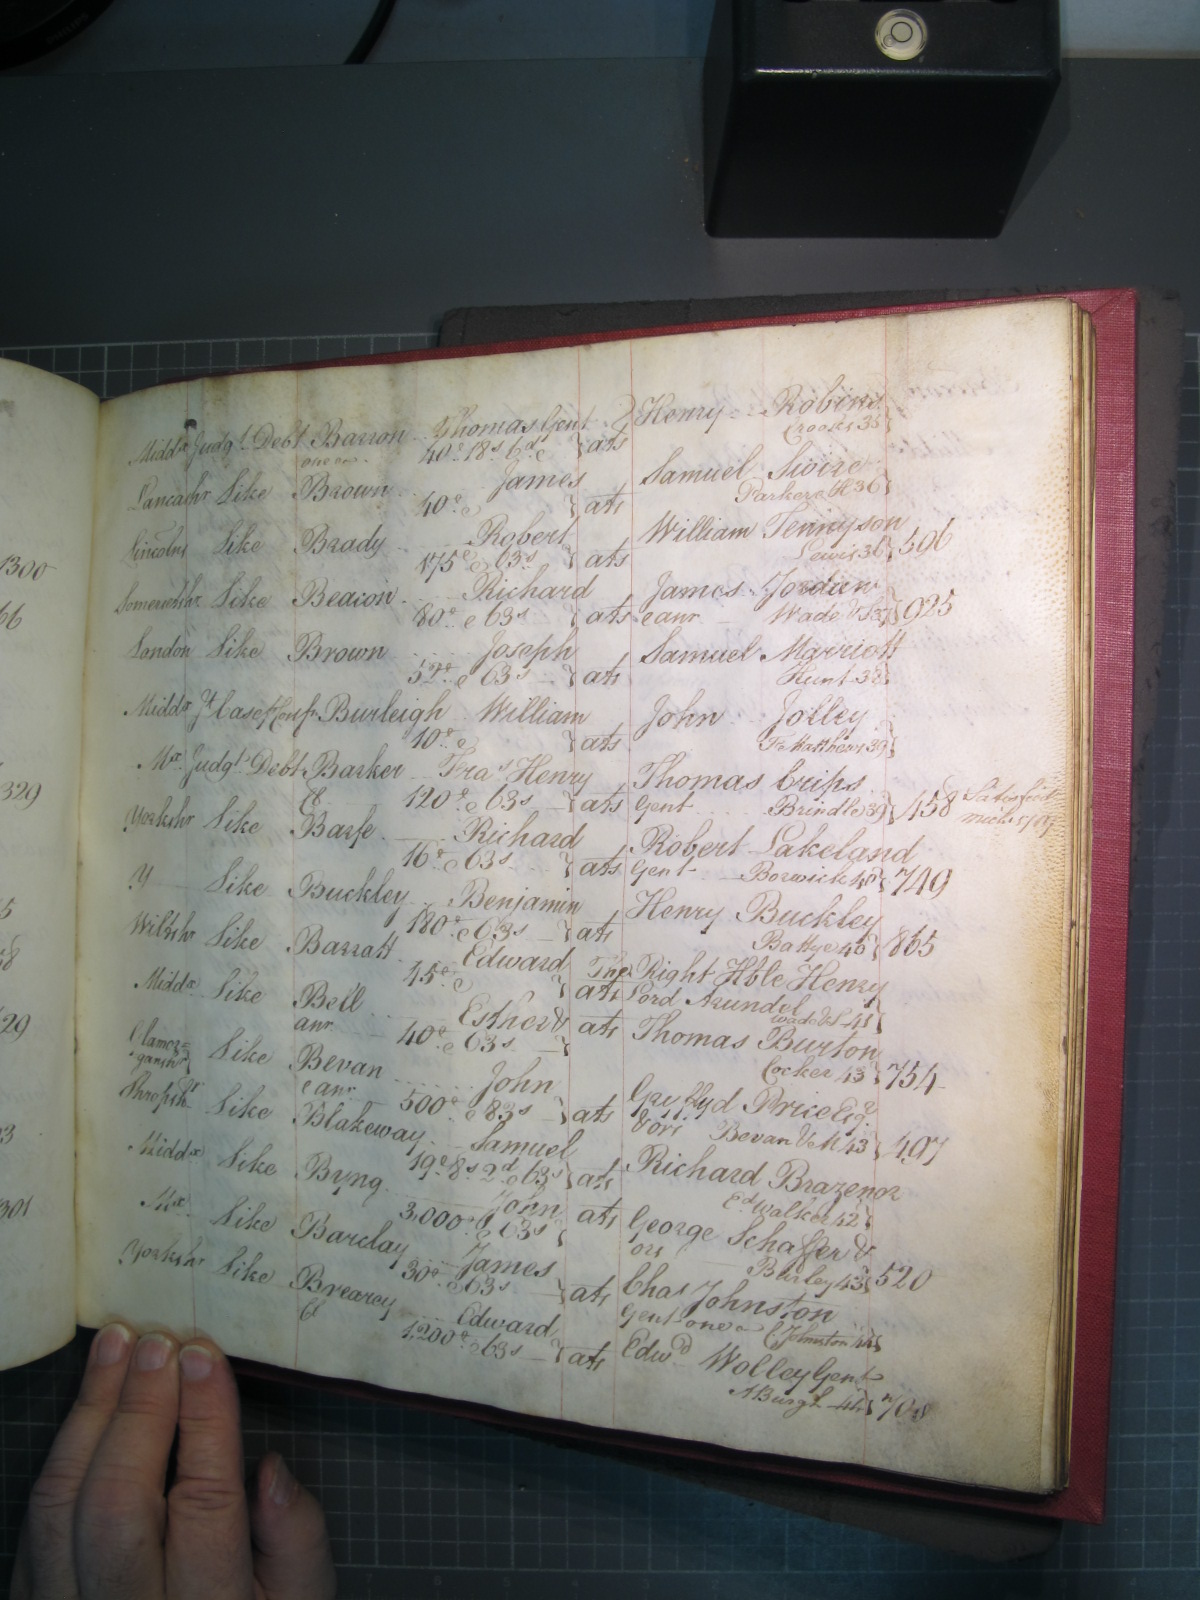 1300
66
329
5
58
29
3
301
Middx Judgt Debt Barron Thomas Gent } ats Henry Robins
one &c 40£ 18s 6d & Crooks 35
Lancashr Like Brown James } ats Samuel Swire
40£ & Parker & Ct 36 }
Lincolns Like Brady Robert } ats William Tennyson
175£ & 63s Lewis 36 } 596
Somersetshr Like Beacon Richard } ats James Jordan
80£ & 63s & anr Wade & S 37 } 925
London Like Brown Joseph } ats Samuel Marriott
52£ & 63s Hunt 38 }
Middx Jt Case Conf Burleigh William } ats John Jolley
10£ & Fr Matthews 39 }
Mx Judgt Debt Barker Fras Henry } ats Thomas Crips
Cl 120£ & 63s Gent Brindle 39 } 458 Satisfied
Yorkshr Like Barfe Richard } ats Robert Lakeland
16£ & 63s Gent Borwick 40 } 749
Y Like Buckley Benjamin } ats Henry Buckley
180£ & 63s Battye 40 } 865
Wiltshr Like Barratt Edward } ats The Right Hble Henry
45£ & Lord Arundel Wade & S 41 }
Middx Like Bell Esther & } ats Thomas Burton
anr 40£ & 63s Cocker 43 } 754
Glamor=
ganshr } Like Bevan John } ats Gryffyd Price Esqr
& anr 500£ & 83s & ors Bevan & M 43 } 497
Shropshr Like Blakeway Samuel } ats Richard Brazenor
19£ 8s 2d & 63s Ed Walker 42 }
Middx Like Byng John } ats George Schaffer &
3,000£ & 63s ors Burley 43 } 520
Mx Like Barclay James } ats Chas Johnston
30£ & 63s Gent one &c C Johnston 44 }
Yorkshr Like Brearey Edward } ats Edwd Wolley Gent
Cl 1,200£ & 63s 44 } 708